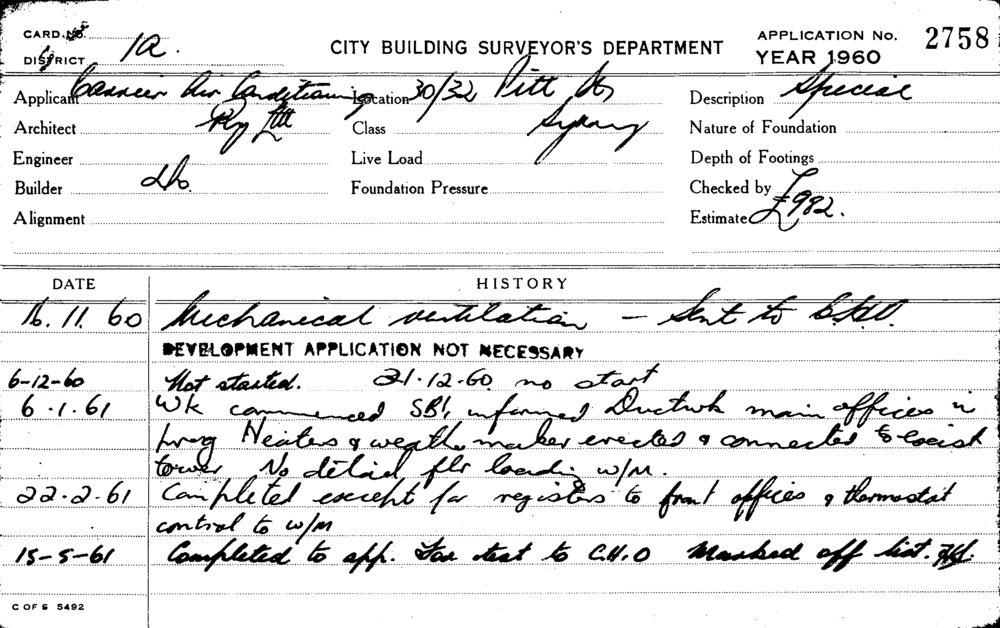 CARD No. 1a. CITY BUILDING SURVEYOR'S DEPARTMENT APPLICATION No. 2758
DISTRICT YEAR 1960
Applicant Carrier Air Conditioning Location 30/32 Pitt St Description Special
Architect Pty Ltd Class Sydney Nature of Foundation
Engineer Live Load Depth of Footings
Builder do. Foundation Pressure Checked by
Alignment Estimate £982.
DATE HISTORY
16.11.60 Mechanical ventilation – Sent to
DEVELOPMENT APPLICATION NOT NECESSARY
6-12-60 Not started. 21.12.60. no start
6.1.61 Wk commenced SBI, informed Ductwk main offices in
prog Heaters & weather maker erected & connected to exist
tower No detail flr loading w/m.
22.2.61 Completed except for registers to front offices & thermostat
control to w/m
15-5-61 Completed to app. For test to C.H.O Marked off list.
C OF S 5492